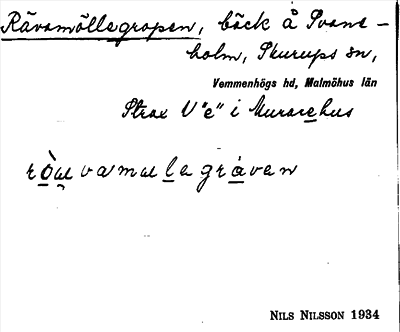 Rävamöllegropen, bäck å Svane-
holm, Skurups sn,
Vemmenhögs hd, Malmöhus län
Strax V "e" i Murarehus
NILS NILSSON 1934